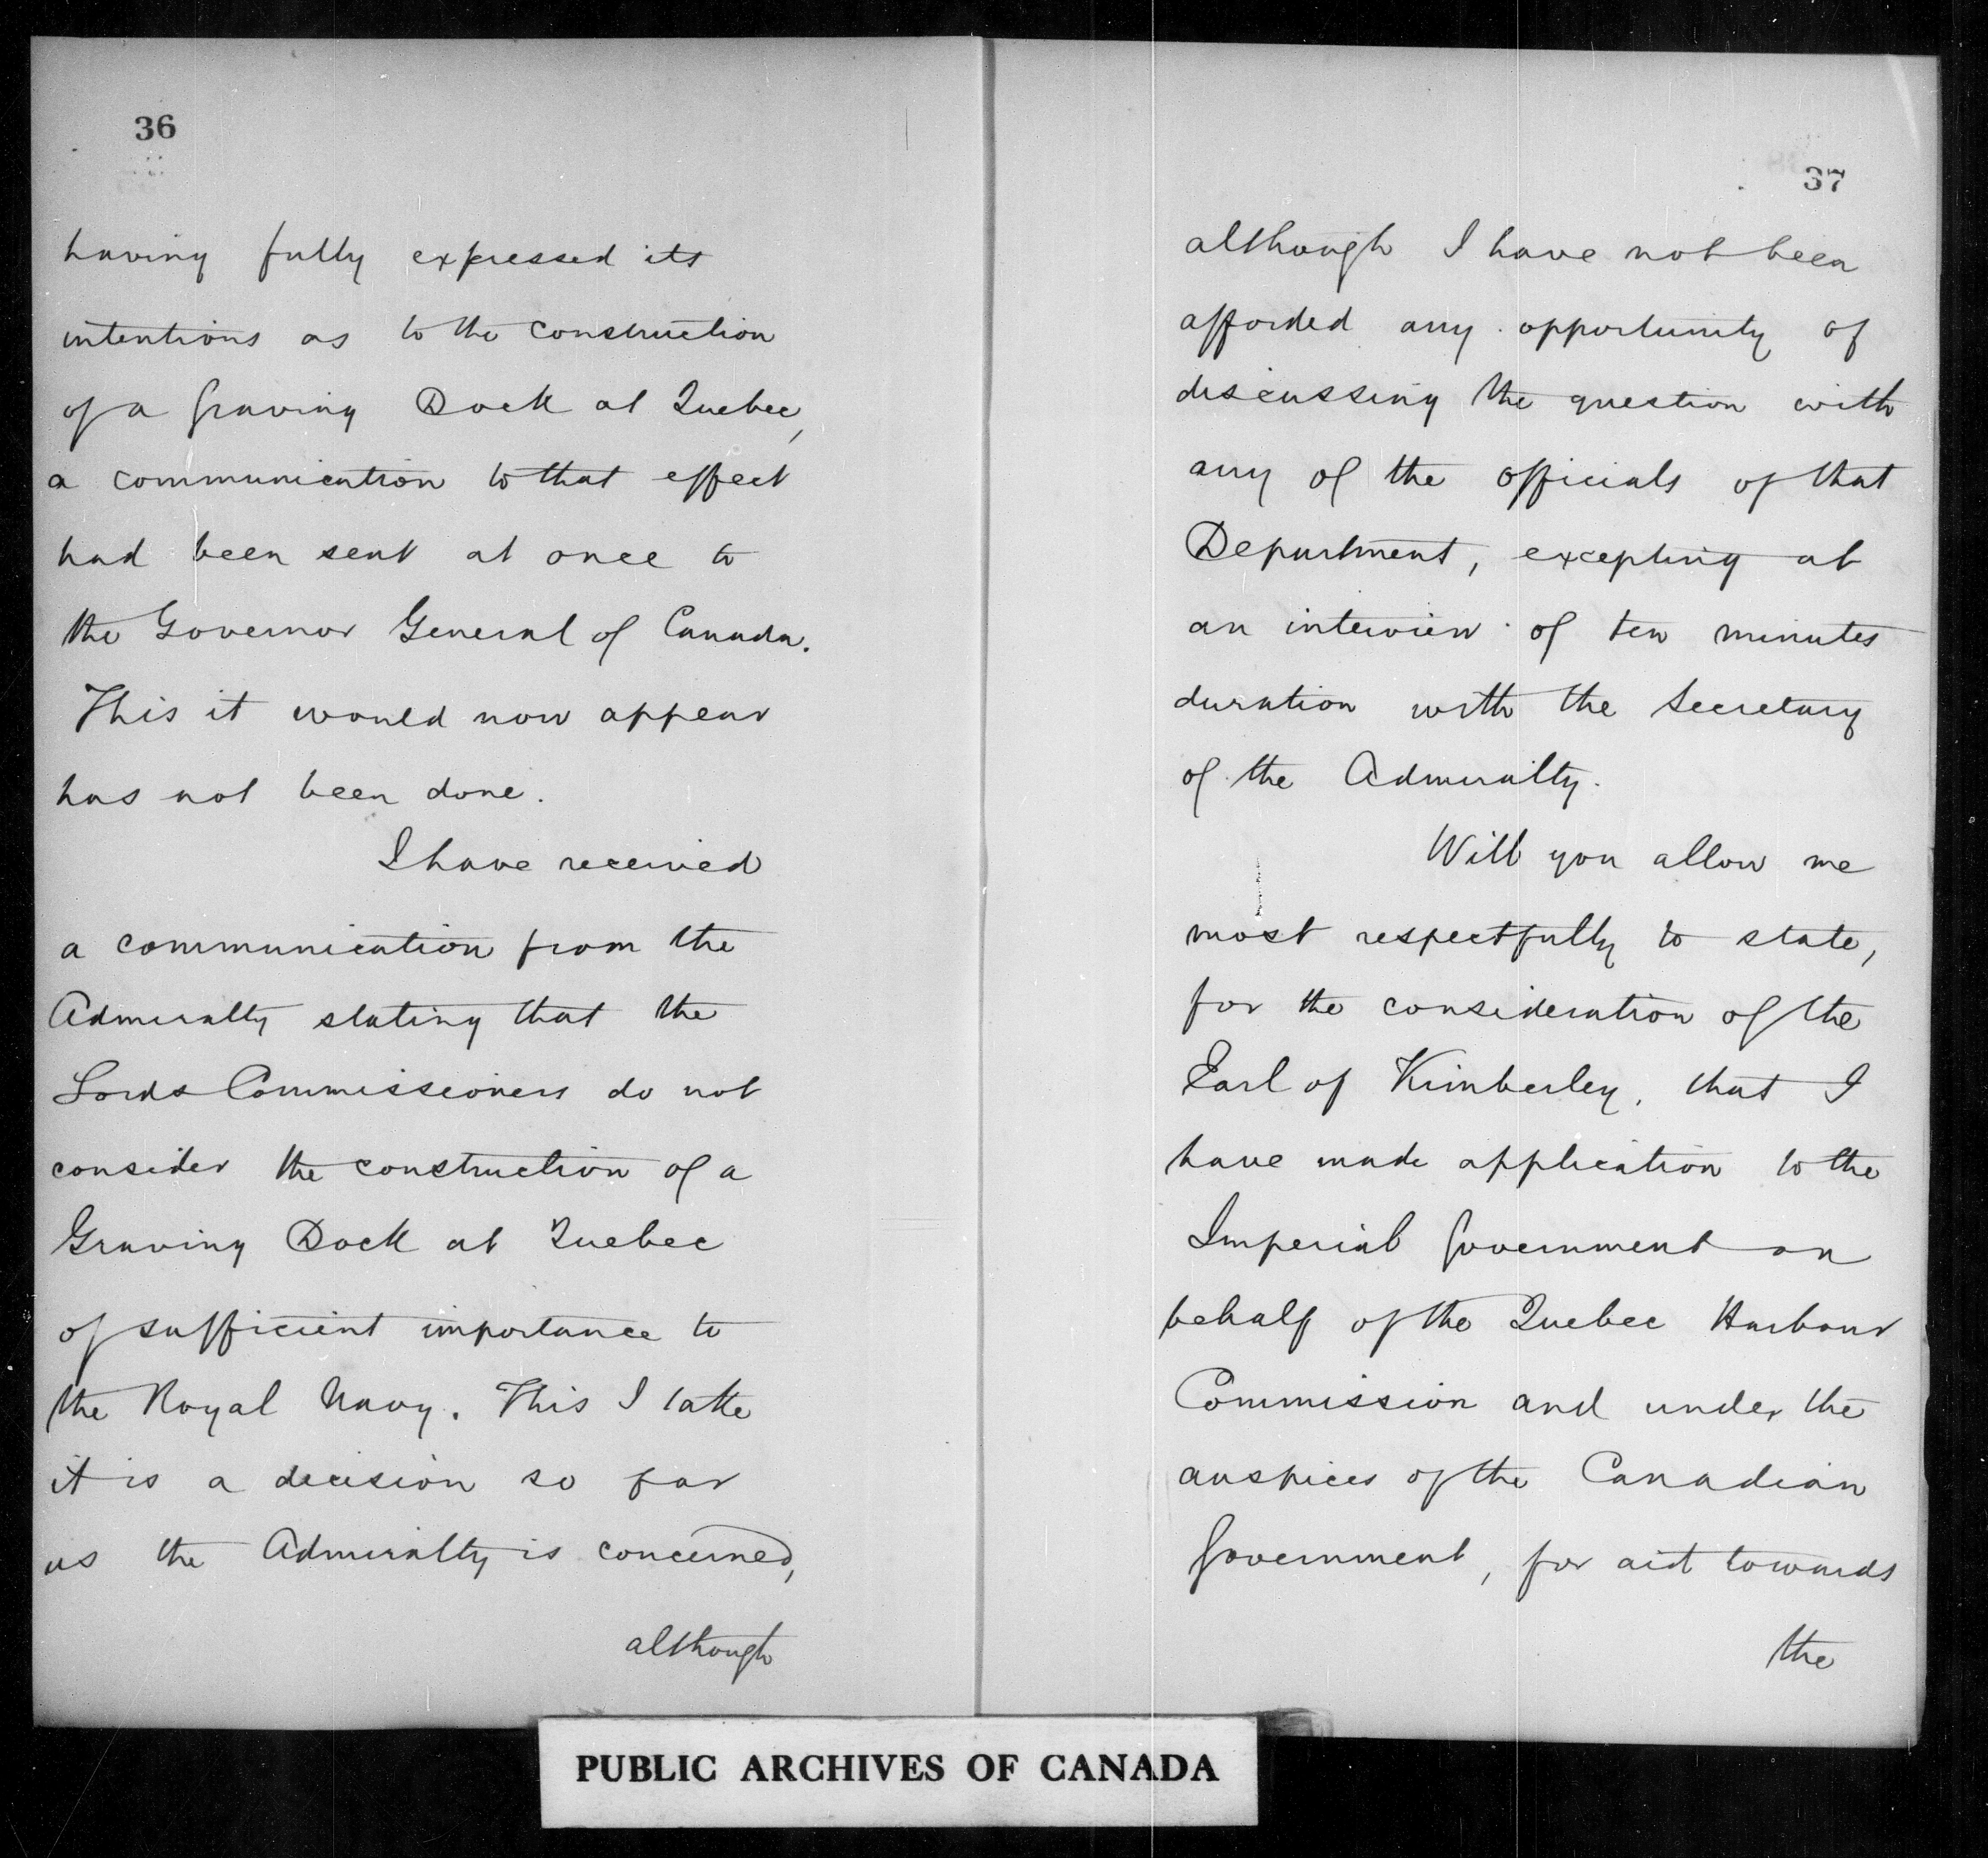 36
having fully expressed its
intentions as to the construction
of a Graving Dock at Quebec,
a communication to that effect
had been sent at once to
the Governor General of Canada.
This it would now appear
has not been done.
I have received
a communication from the
Admiralty stating that the
Lords Commissioners do not
consider the construction of a
Graving Dock at Quebec
of sufficient importance to
the Royal Navy. This I take
it is a decision so far
as the Admiralty is concerned,
although
37
although I have not been
afforded any opportunity of
discussing the question with
any of the officials of that
Department, excepting at
an interview of ten minutes
duration with the Secretary
of the Admiralty.
Will you allow me
most respectfully to state,
for the consideration of the
Earl of Kimberley, that I
have made application to the
Imperial Government on
behalf of the Quebec Harbour
Commission and under the
auspices of the Canadian
Government, for aid towards
the
PUBLIC ARCHIVES OF CANADA